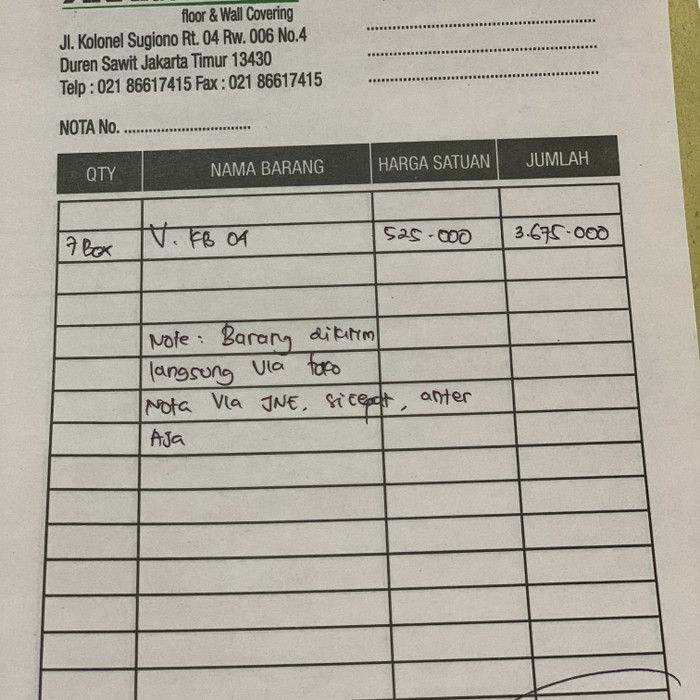 floor & Wall Covering
Jl. Kolonel Sugiono Rt. 04 Rw. 006 No.4
Duren Sawit Jakarta Timur 13430
Telp : 021 86617415 Fax : 021 86617415
NOTA No. ................................
QTY NAMA BARANG HARGA SATUAN JUMLAH
7 Box V. FB 04 525.000 3.675.000
Note : Barang dikirim
langsung Via toko
Nota Via JNE, sicepat, anter
Aja